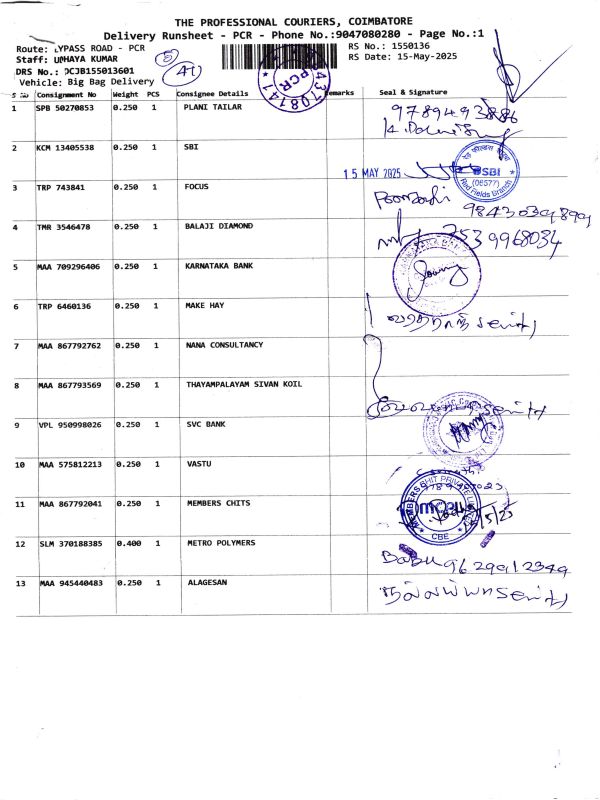 THE PROFESSIONAL COURIERS, COIMBATORE
Delivery Runsheet - PCR - Phone No.:9047080280 - Page No.:1
Route: BYPASS ROAD - PCR
RS No.: 1550136
Staff: UDHAYA KUMAR
RS Date: 15-May-2025
DRS No.: DCJB155013601
Vehicle: Big Bag Delivery
5
41
PCR
S No Consignment No Weight PCS Consignee Details Remarks Seal & Signature
1 SPB 50270853 0.250 1 PLANI TAILAR 9789493886
2 KCM 13405538 0.250 1 SBI 15 MAY 2025
SBI
(06577)
Red Fields Branch
3 TRP 743841 0.250 1 FOCUS
4 TMR 3546478 0.250 1 BALAJI DIAMOND 7539968034
5 MAA 709296406 0.250 1 KARNATAKA BANK
6 TRP 6460136 0.250 1 MAKE HAY
7 MAA 867792762 0.250 1 NANA CONSULTANCY
8 MAA 867793569 0.250 1 THAYAMPALAYAM SIVAN KOIL
9 VPL 950998026 0.250 1 SVC BANK
10 MAA 575812213 0.250 1 VASTU
11 MAA 867792041 0.250 1 MEMBERS CHITS
CBE
12 SLM 370188385 0.400 1 METRO POLYMERS Babu 9629912349
13 MAA 945440483 0.250 1 ALAGESAN